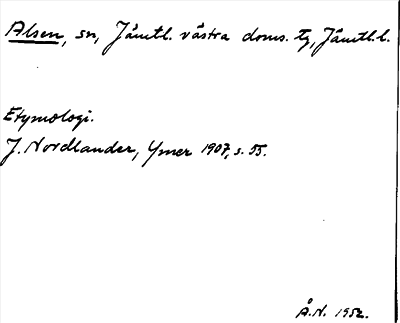 Alsen, sn, Jämtl. västra doms. tg, Jämtl.l.
Etymologi.
J. Nordlander, Ymer 1907, s. 55.
Å.N. 1952.